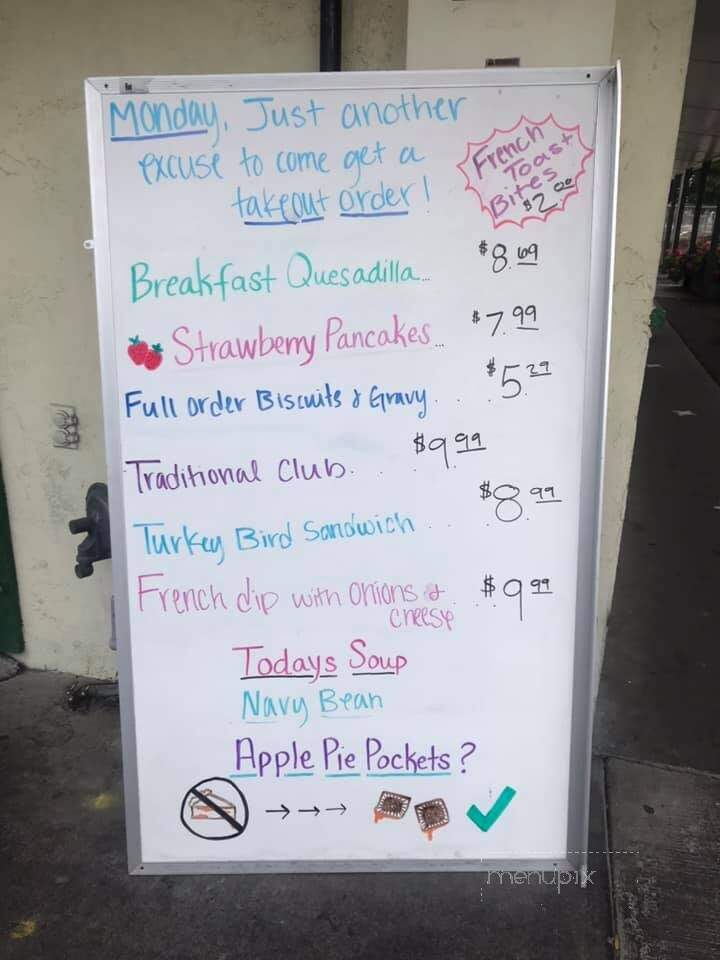 Monday, Just another
excuse to come get a
takeout order!
French
Toast
Bites
$2.00
Breakfast Quesadilla... $8.69
Strawberry Pancakes... $7.99
Full order Biscuits & Gravy... $5.29
Traditional Club... $9.99
Turkey Bird Sandwich... $8.99
French dip with onions & $9.99
cheese
Todays Soup
Navy Bean
Apple Pie Pockets?
menupix